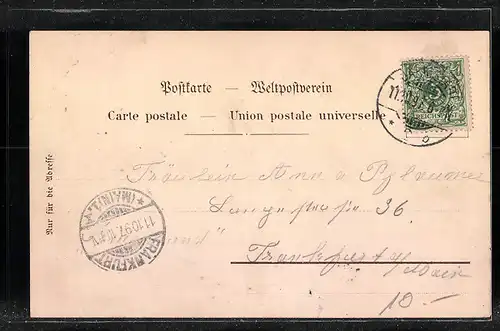 Postkarte — Weltpostverein
Carte postale — Union postale universelle
Nur für die Adresse
11.10.97
Fräulein Anna
Langestrasse 36
Frankfurt
Main
FRANKFURT (MAIN) 1.
11.10.97
10.—